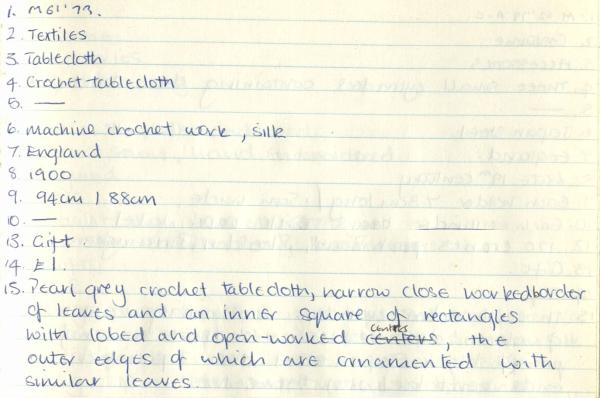 1. M61'73.
2. Textiles
3. Tablecloth
4. Crochet tablecloth
5. —
6. machine crochet work, silk
7. England
8. 1900
9. 94cm / 88cm
10. —
13. Gift.
14. E1.
15. Pearl grey crochet tablecloth, narrow close worked border
of leaves and an inner square of rectangles
with lobed and open-worked centers centres, the
outer edges of which are ornamented with
similar leaves.